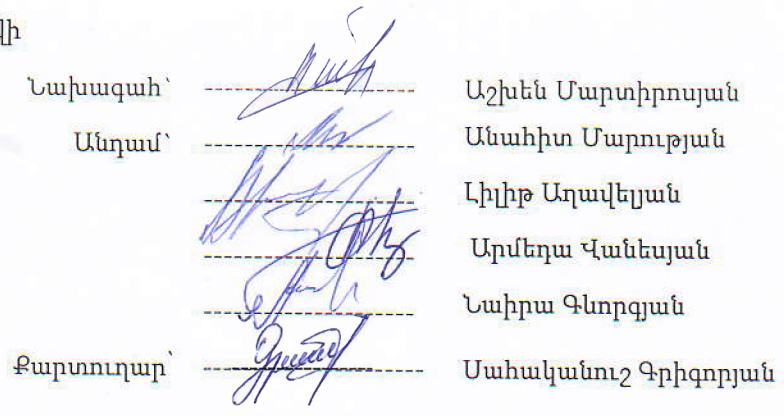 վի
Նախագահ՝ Աշխեն Մարտիրոսյան
Անդամ՝ Անահիտ Մարության
Լիլիթ Աղավելյան
Արմեդա Վանեսյան
Նաիրա Գևորգյան
Քարտուղար՝ Սահականուշ Գրիգորյան